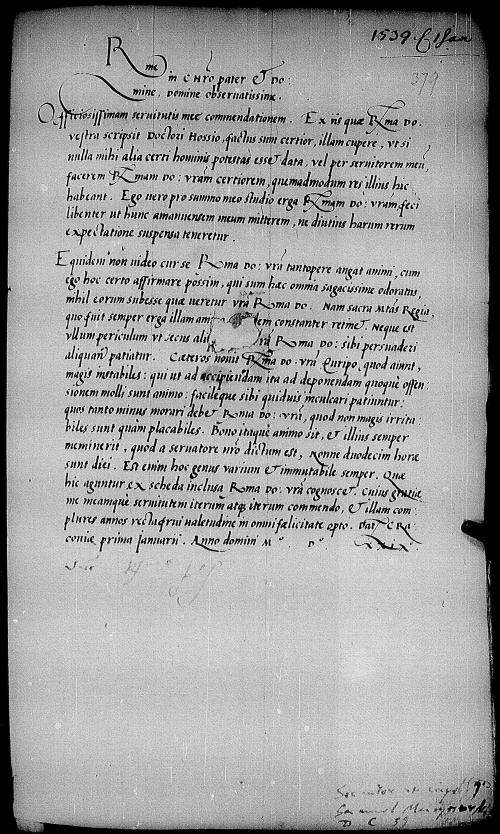 1539 1 Jan
379
Rme
in CHRo pater et Do:
mine, Domine observatissime.
Officiosissimam servitutis mee commendationem. Ex iis quæ Rma Do:
vestra scripsit Doctori Hossio, factus sum certior, illam cupere, ut si
nulla mihi alia certi hominis potestas esset data, vel per servitorem meu,
facerem Rmam Do: vram certiorem, quemadmodum res illius hic
habeant. Ego vero pro summo meo studio erga Rmam Do: vram feci
libenter ut hunc amanuensem meum mitterem, ne diutius harum rerum
expectatione suspensa teneretur.
Equidem non video cur se Rma Do: vra tantopere angat animi, cum
ego hoc certo affirmare possim, qui sum hæc omnia sagacissime odoratus,
nihil eorum subesse quæ veretur vra Rma Do. Nam sacra Mtas Regia,
quo fuit semper erga illam ani em constanter retinet. Neque est
ullum periculum ut secus ali vra Rma Do: sibi persuaderi
aliquan patiatur. Cæteros novit Rma Do: vra Euripo, quod aiunt,
magis instabiles: qui ut ad accipiendam ita ad deponendam quoque offen
sionem molli sunt animo: facileque sibi quiduis inculcari patiuntur:
quos tanto minus morari debet Rma Do: vra, quod non magis irrita
biles sunt quam placabiles. Bono itaque animo sit, et illius semper
meminerit, quod a servatore nro dictum est, Nonne duodecim horæ
sunt diei. Est enim hoc genus varium et immutabile semper. Quæ
hic aguntur ex scheda inclusa Rma Do: vra cognoscet. Cuius gratiæ
me meamque servitutem iterum atque iterum commendo, et illam com
plures annos recta frui valetudine in omni fælicitate opto. Dat CRa
coviæ prima Januarii. Anno domini Mo. Do. XXXIX.